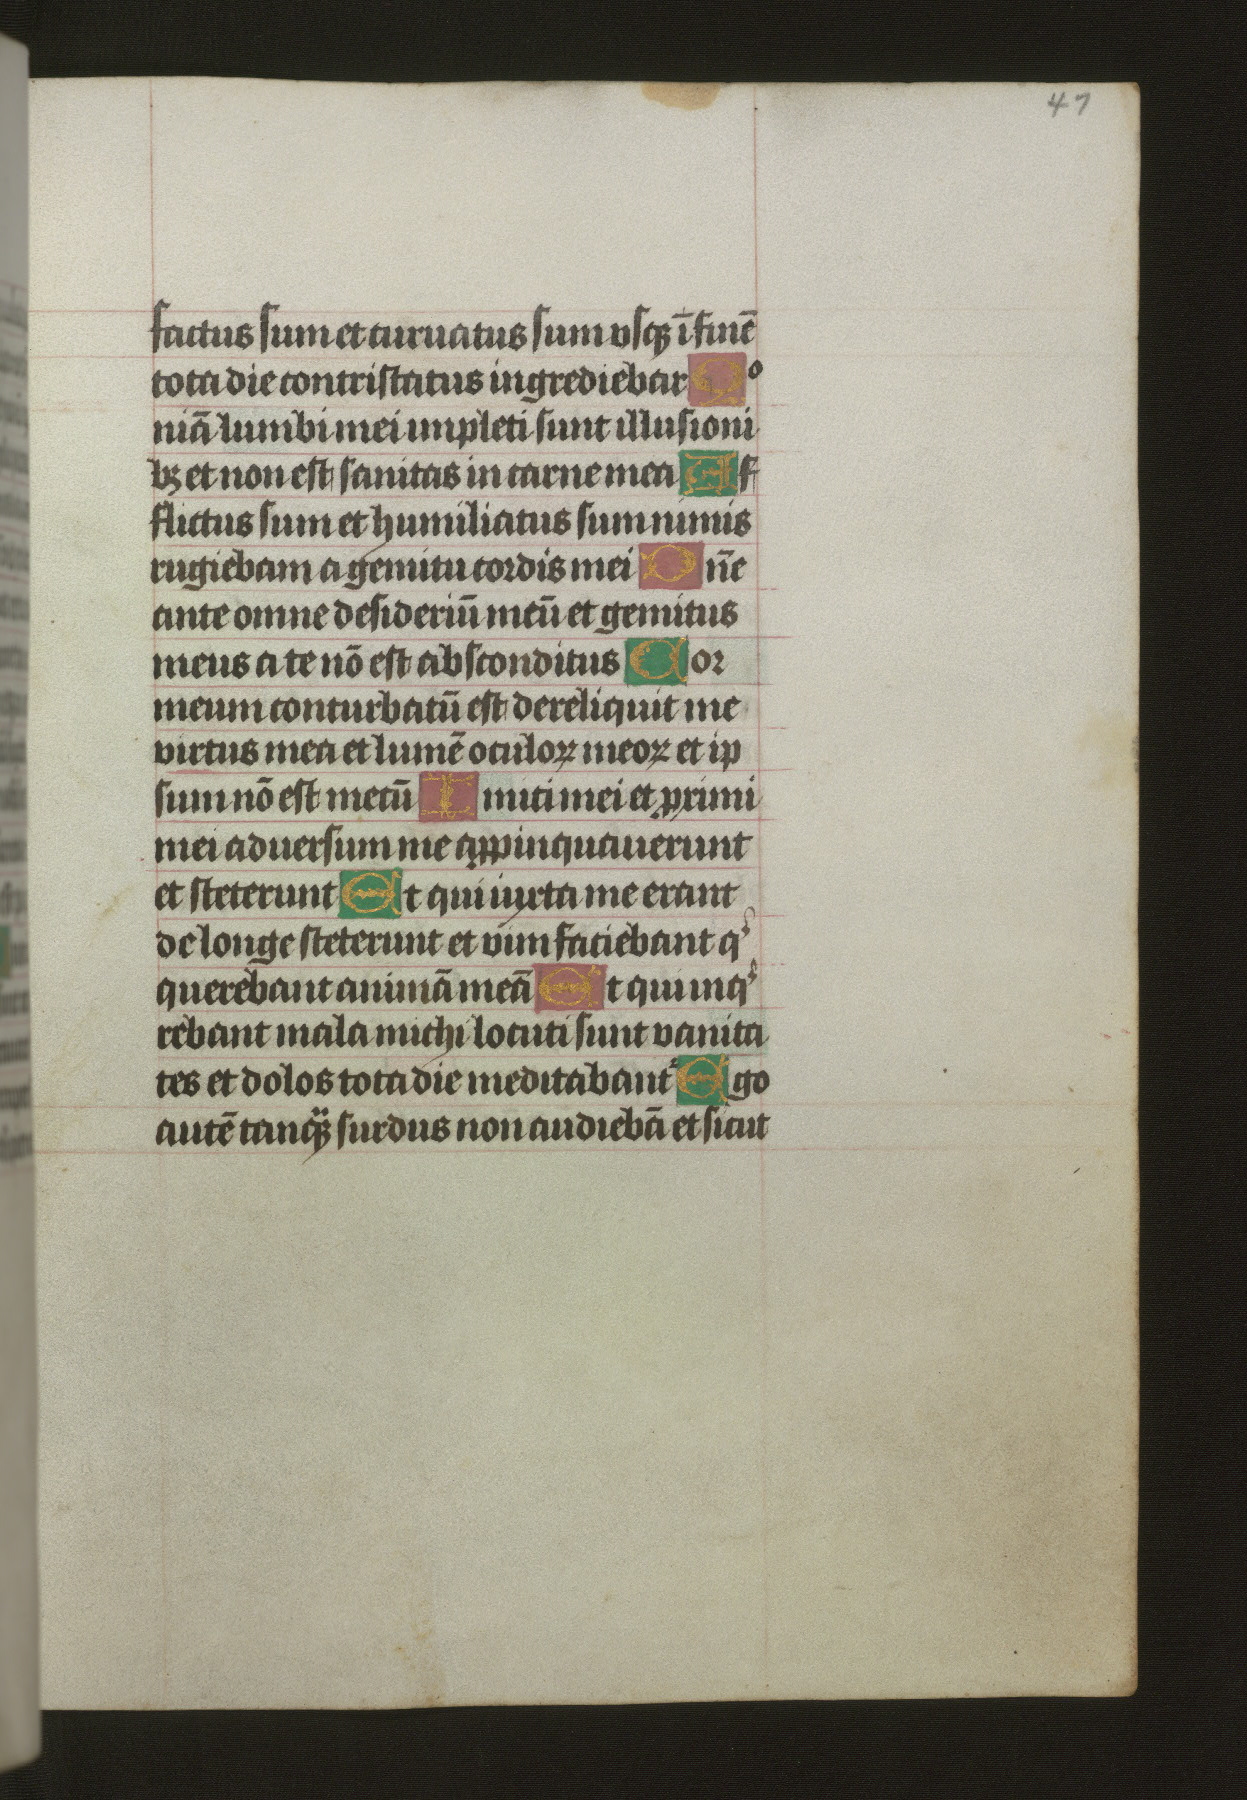 47
factus sum et curuatus sum vsqꝫ ī finē
tota die contristatus ingrediebar Qo
niā lumbi mei impleti sunt illusioni
bꝫ et non est sanitas in carne mea Af
flictus sum et humiliatus sum nimis
rugiebam a gemitu cordis mei Dn̄e
ante omne desideriū meū et gemitus
meus a te nō est absconditus Cor
meum conturbatū est dereliquit me
virtus mea et lumē oculoꝝ meoꝝ et ip
sum nō est mecū Inimici mei et ꝓximi
mei aduersum me aꝓpinquauerunt
et steterunt Et qui iuxta me erant
de longe steterunt et vim faciebant qͥ
querebant animā meā Et qui inqͥ
rebant mala michi locuti sunt vanita
tes et dolos tota die meditabant᷑ Ego
autē tanqꝫ surdus non audiebā et sicut